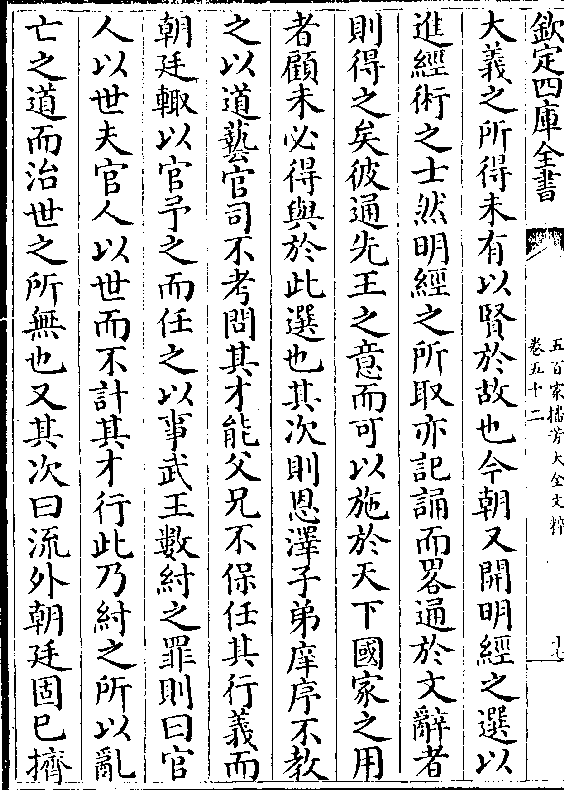 欽定四庫全書
五百家播芳大全文粹
卷五十二
大義之所得未有以賢於故也今朝又開明經之選以
進經術之士然明經之所取亦記誦而畧通於文辭者
則得之矣彼通先王之意而可以施於天下國家之用
者顧未必得與於此選也其次則恩澤子弟庠序不教
之以道藝官司不考問其才能父兄不保任其行義而
朝廷輙以官予之而任之以事武王數紂之罪則曰官
人以世夫官人以世而不計其才行此乃紂之所以亂
亡之道而治世之所無也又其次曰流外朝廷固已擠